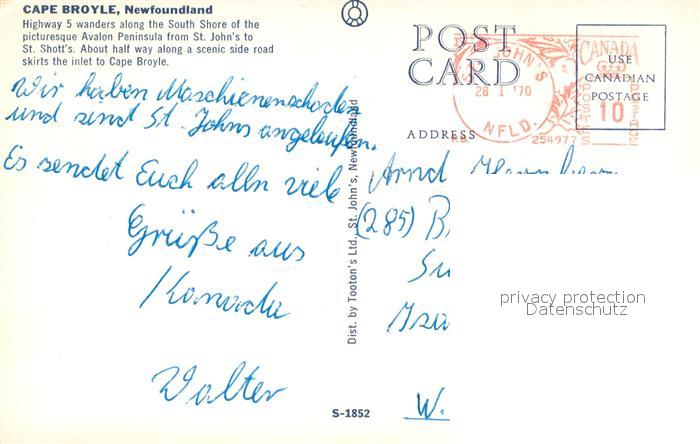 CAPE BROYLE, Newfoundland
Highway 5 wanders along the South Shore of the
picturesque Avalon Peninsula from St. John's to
St. Shott's. About half way along a scenic side road
skirts the inlet to Cape Broyle.
Wir haben Maschienenschaden
und sind St. Johns angelaufen.
Es sendet Euch alln viele
Grüße aus
Kanada
Walter
S-1852
Dist. by Tooton's Ltd., St. John's, Newfoundland
POST
CARD
ADDRESS
ST. JOHN'S
28 I '70
NFLD.
P.B.
254977
CANADA
POSTES
10
POSTAGE
USE
CANADIAN
POSTAGE
Arnd
(285) B
Su
Isa
W.
privacy protection
Datenschutz